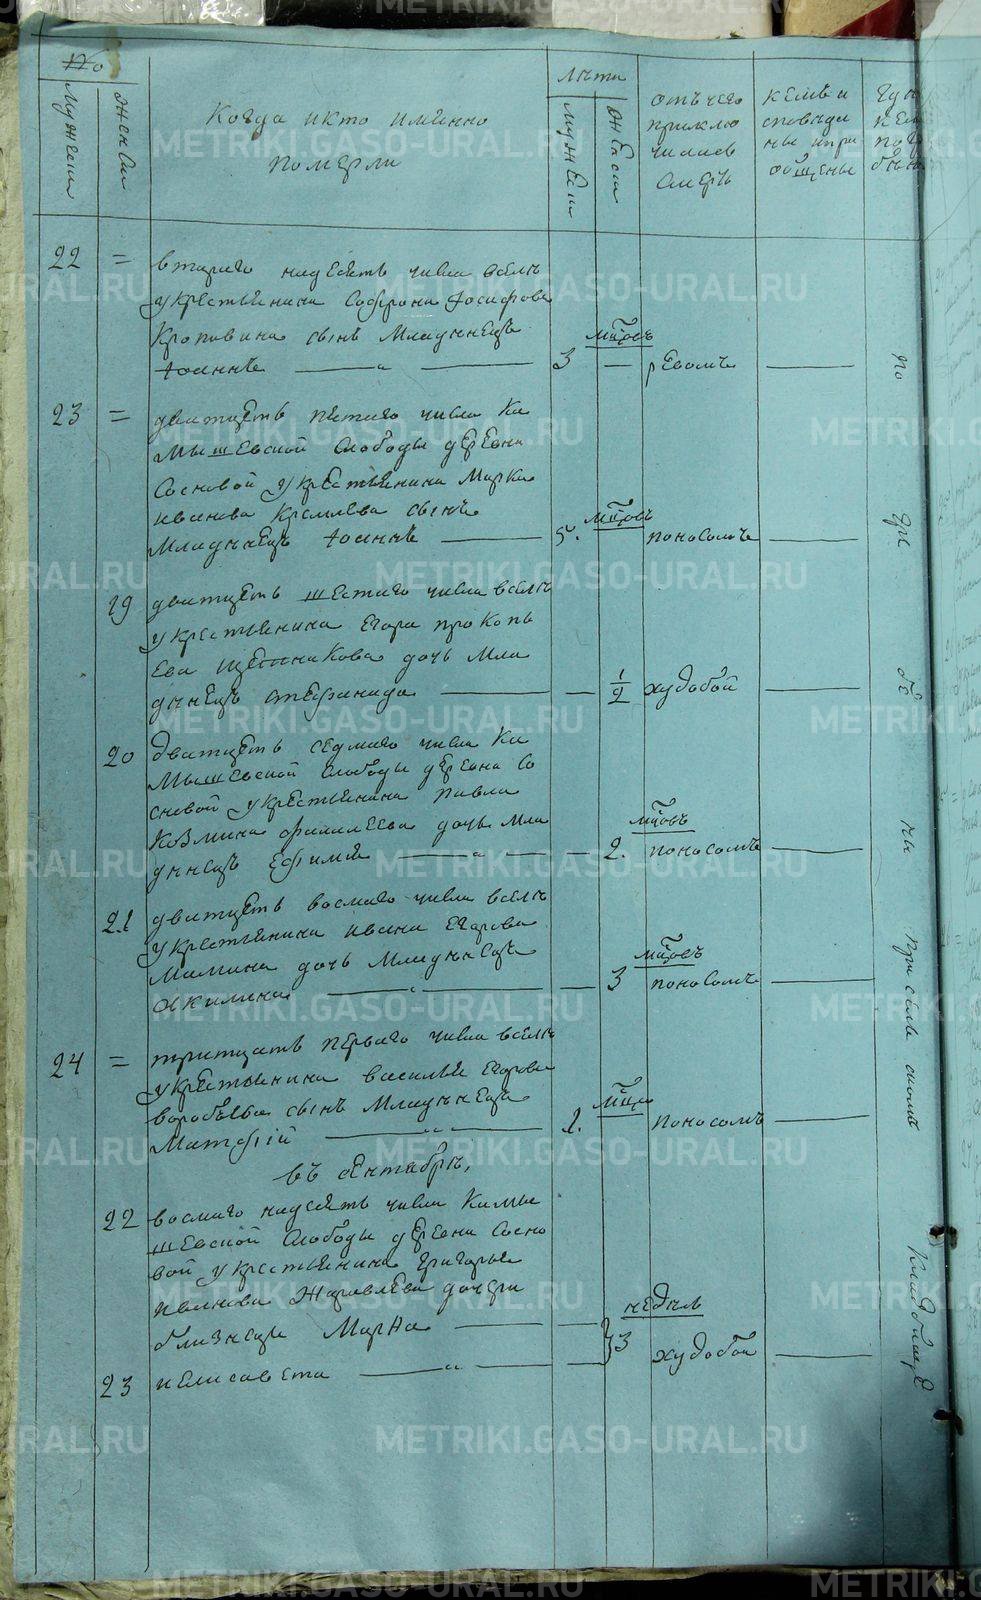 №
Мужескъ
Женск
Когда и кто именно
померли
Лѣта
Мужеск
Женск
отъ чего
приклю
чилась
смерть
кемъ и
споведа
ны и при
общены
22 = втораго надесять числа вселѣ
у крестьянина Софрона Иосифова
Кропотина сынъ Младѣнецъ
Иоаннъ
3 мцовъ
ревомъ
23 = дватцеть пятаго числа Ка
мышевской слободы деревни
Сосновой у крестьянина Марка
Иванова сынъ
Младѣнецъ Иоаннъ
5. мцовъ
поносомъ
19 дватцеть шестаго числа вселѣ
у крестьянина Егора Прокопь
ева дочь мла
дѣнецъ Стефанида
1/2
худобой
20 дватцеть седмаго числа Ка
мышевской слободы деревни Со
сновой у крестьянина Павла
Козмина дочь мла
дѣнецъ Ефимия
2. мцовъ
поносомъ
21 дватцеть восмаго числа вселѣ
у крестьянина Ивана Егорова
Мамина дочь Младѣнецъ
Акилина
3 мцовъ
поносомъ
24 = тритцать перваго числа вселѣ
у крестьянина Василья Егорова
Воробьева сынъ Младѣнецъ
Матфій
поносомъ
въ сентябрѣ,
22 восмаго надесять числа Камы
шевской слободы деревни Сосно
вой у крестьянина Григорья
Иванова Журавлева дочери
близнецы Марѳа
23 и Елисавета
3 недѣль
худобой
На
при селе
кладбище
METRIKI.GASO-URAL.RU